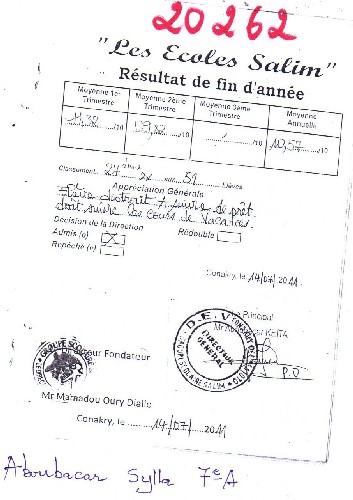 20262
"Les Ecoles Salim"
Résultat de fin d'année
Moyenne 1er Trimestre
Moyenne 2ème Trimestre
Moyenne 3ème Trimestre
Moyenne Annuelle
11,38 /10
09,83 /10
/10
10,57 /10
Classement: 24ème sur 51 Elèves
Appréciation Générale
Elève à suivre de prêt
doit suivre les cours de vacances.
Décision de la Direction
Admis (e) X Redouble
Repêché (e)
Conakry, le 14/07/2011
Principal
KEITA
D.E.V
DIRECTEUR GENERAL
SCOLAIRE SALIM
P.O
Fondateur
Mr Mamadou Oury Diallo
Conakry, le 14/07/2011
Aboubacar Sylla 7e A